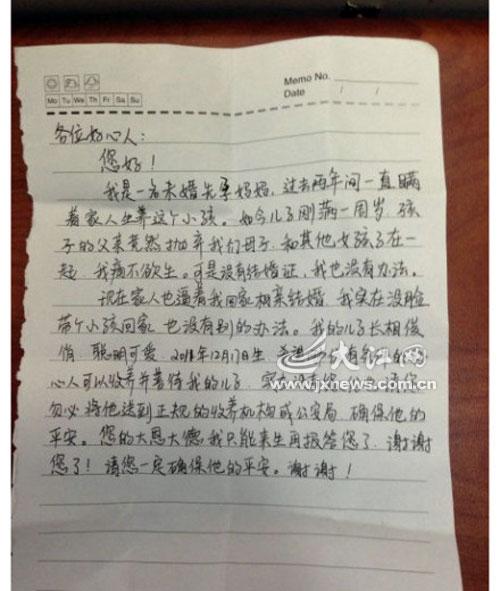 Memo No.
Mo Tu We Th Fr Sa Su
Date / /
各位好心人：
您好！
我是一名未婚先孕妈妈，过去两年间一直瞒
着家人生养这个小孩。如今儿子刚满一周岁，孩
子的父亲竟然抛弃我们母子，和其他女孩子在一
起，我痛不欲生。可是没有结婚证，我也没有办法。
现在家人也逼着我回家相亲结婚，我实在没脸
带个小孩回家，也没有别的办法。我的儿子长相俊
俏，聪明可爱，12月1日生，希望
心人可以收养并善待我的儿子，
勿必将他送到正规的收养机构或公安局，确保他的
平安。您的大恩大德，我只能来生再报答您了，谢谢
您了！请您一定确保他的平安。谢谢！
大江网
www.jxnews.com.cn